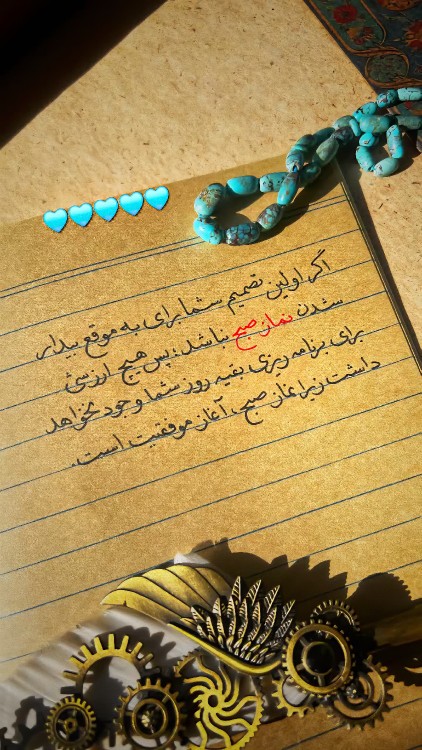 اگر اولین تصمیم شما برای به موقع بیدار
شدن نماز صبح نباشد؛ پس هیچ ارزشی
برای برنامه ریزی بقیه روز شما وجود نخواهد
داشت زیرا نماز صبح، آغاز موفقیت است.